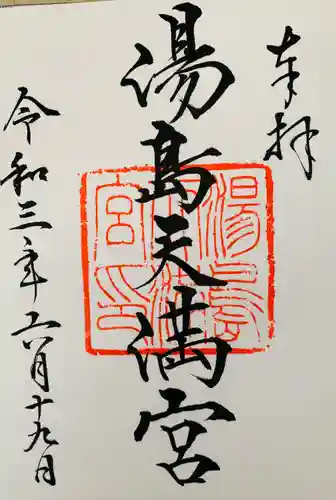 奉拝
湯島天満宮
令和三年六月十九日